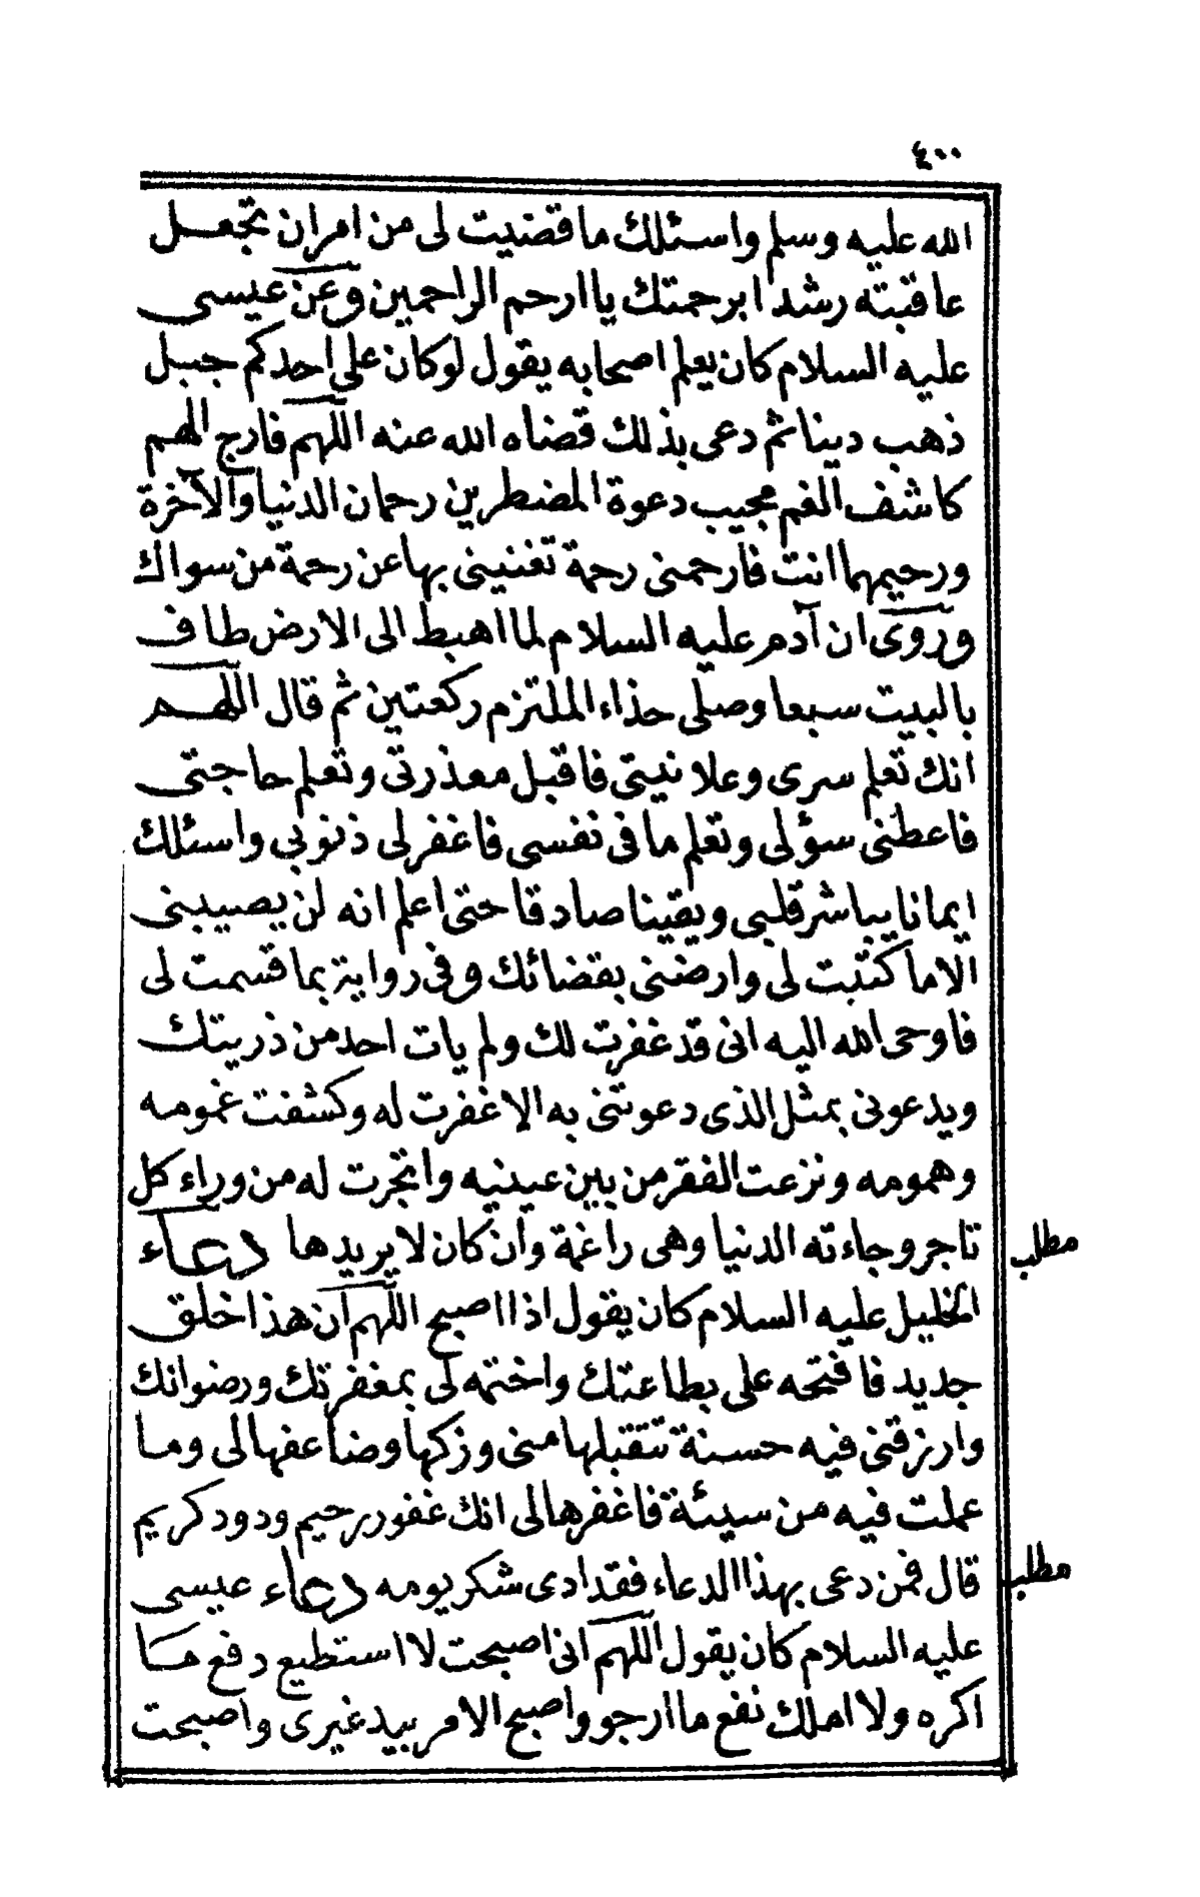 ٤٠٠
الله عليه وسلم واسئلك ما قضيت لى من امر ان تجعل
عاقبته رشدا برحمتك يا ارحم الراحمين وعن عيسى
عليه السلام كان يعلم اصحابه يقول لو كان على احدكم جبل
ذهب دينا ثم دعى بذلك قضاه الله عنه اللهم فارج الهم
كاشف الغم مجيب دعوة المضطرين رحمان الدنيا والآخرة
ورحيمهما انت فارحمنى رحمة تغنينى بها عن رحمة من سواك
وروى ان آدم عليه السلام لما اهبط الى الارض طاف
بالبيت سبعا وصلى حذاء الملتزم ركعتين ثم قال اللهم
انك تعلم سرى وعلانيتى فاقبل معذرتى وتعلم حاجتى
فاعطنى سؤلى وتعلم ما فى نفسى فاغفر لى ذنوبى واسئلك
ايمانا يباشر قلبى ويقينا صادقا حتى اعلم انه لن يصيبنى
الا ما كتبت لى وارضنى بقضائك وفى رواية بما قسمت لى
فاوحى الله اليه انى قد غفرت لك ولم يات احد من ذريتك
ويدعونى بمثل الذى دعوتنى به الا غفرت له وكشفت غمومه
وهمومه ونزعت الفقر من بين عينيه واتجرت له من وراء كل
تاجر وجاءته الدنيا وهى راغمة وان كان لا يريدها دعاء
مطلب
الخليل عليه السلام كان يقول اذا اصبح اللهم ان هذا خلق
جديد فافتحه على بطاعتك واختمه لى بمغفرتك ورضوانك
وارزقنى فيه حسنة تتقبلها منى وزكها وضاعفها لى وما
عملت فيه من سيئة فاغفرها لى انك غفور رحيم ودود كريم
قال فمن دعى بهذا الدعاء فقد ادى شكر يومه دعاء عيسى
مطلب
عليه السلام كان يقول اللهم انى اصبحت لا استطيع دفع ما
اكره ولا املك نفع ما ارجو واصبح الامر بيد غيرى واصبحت